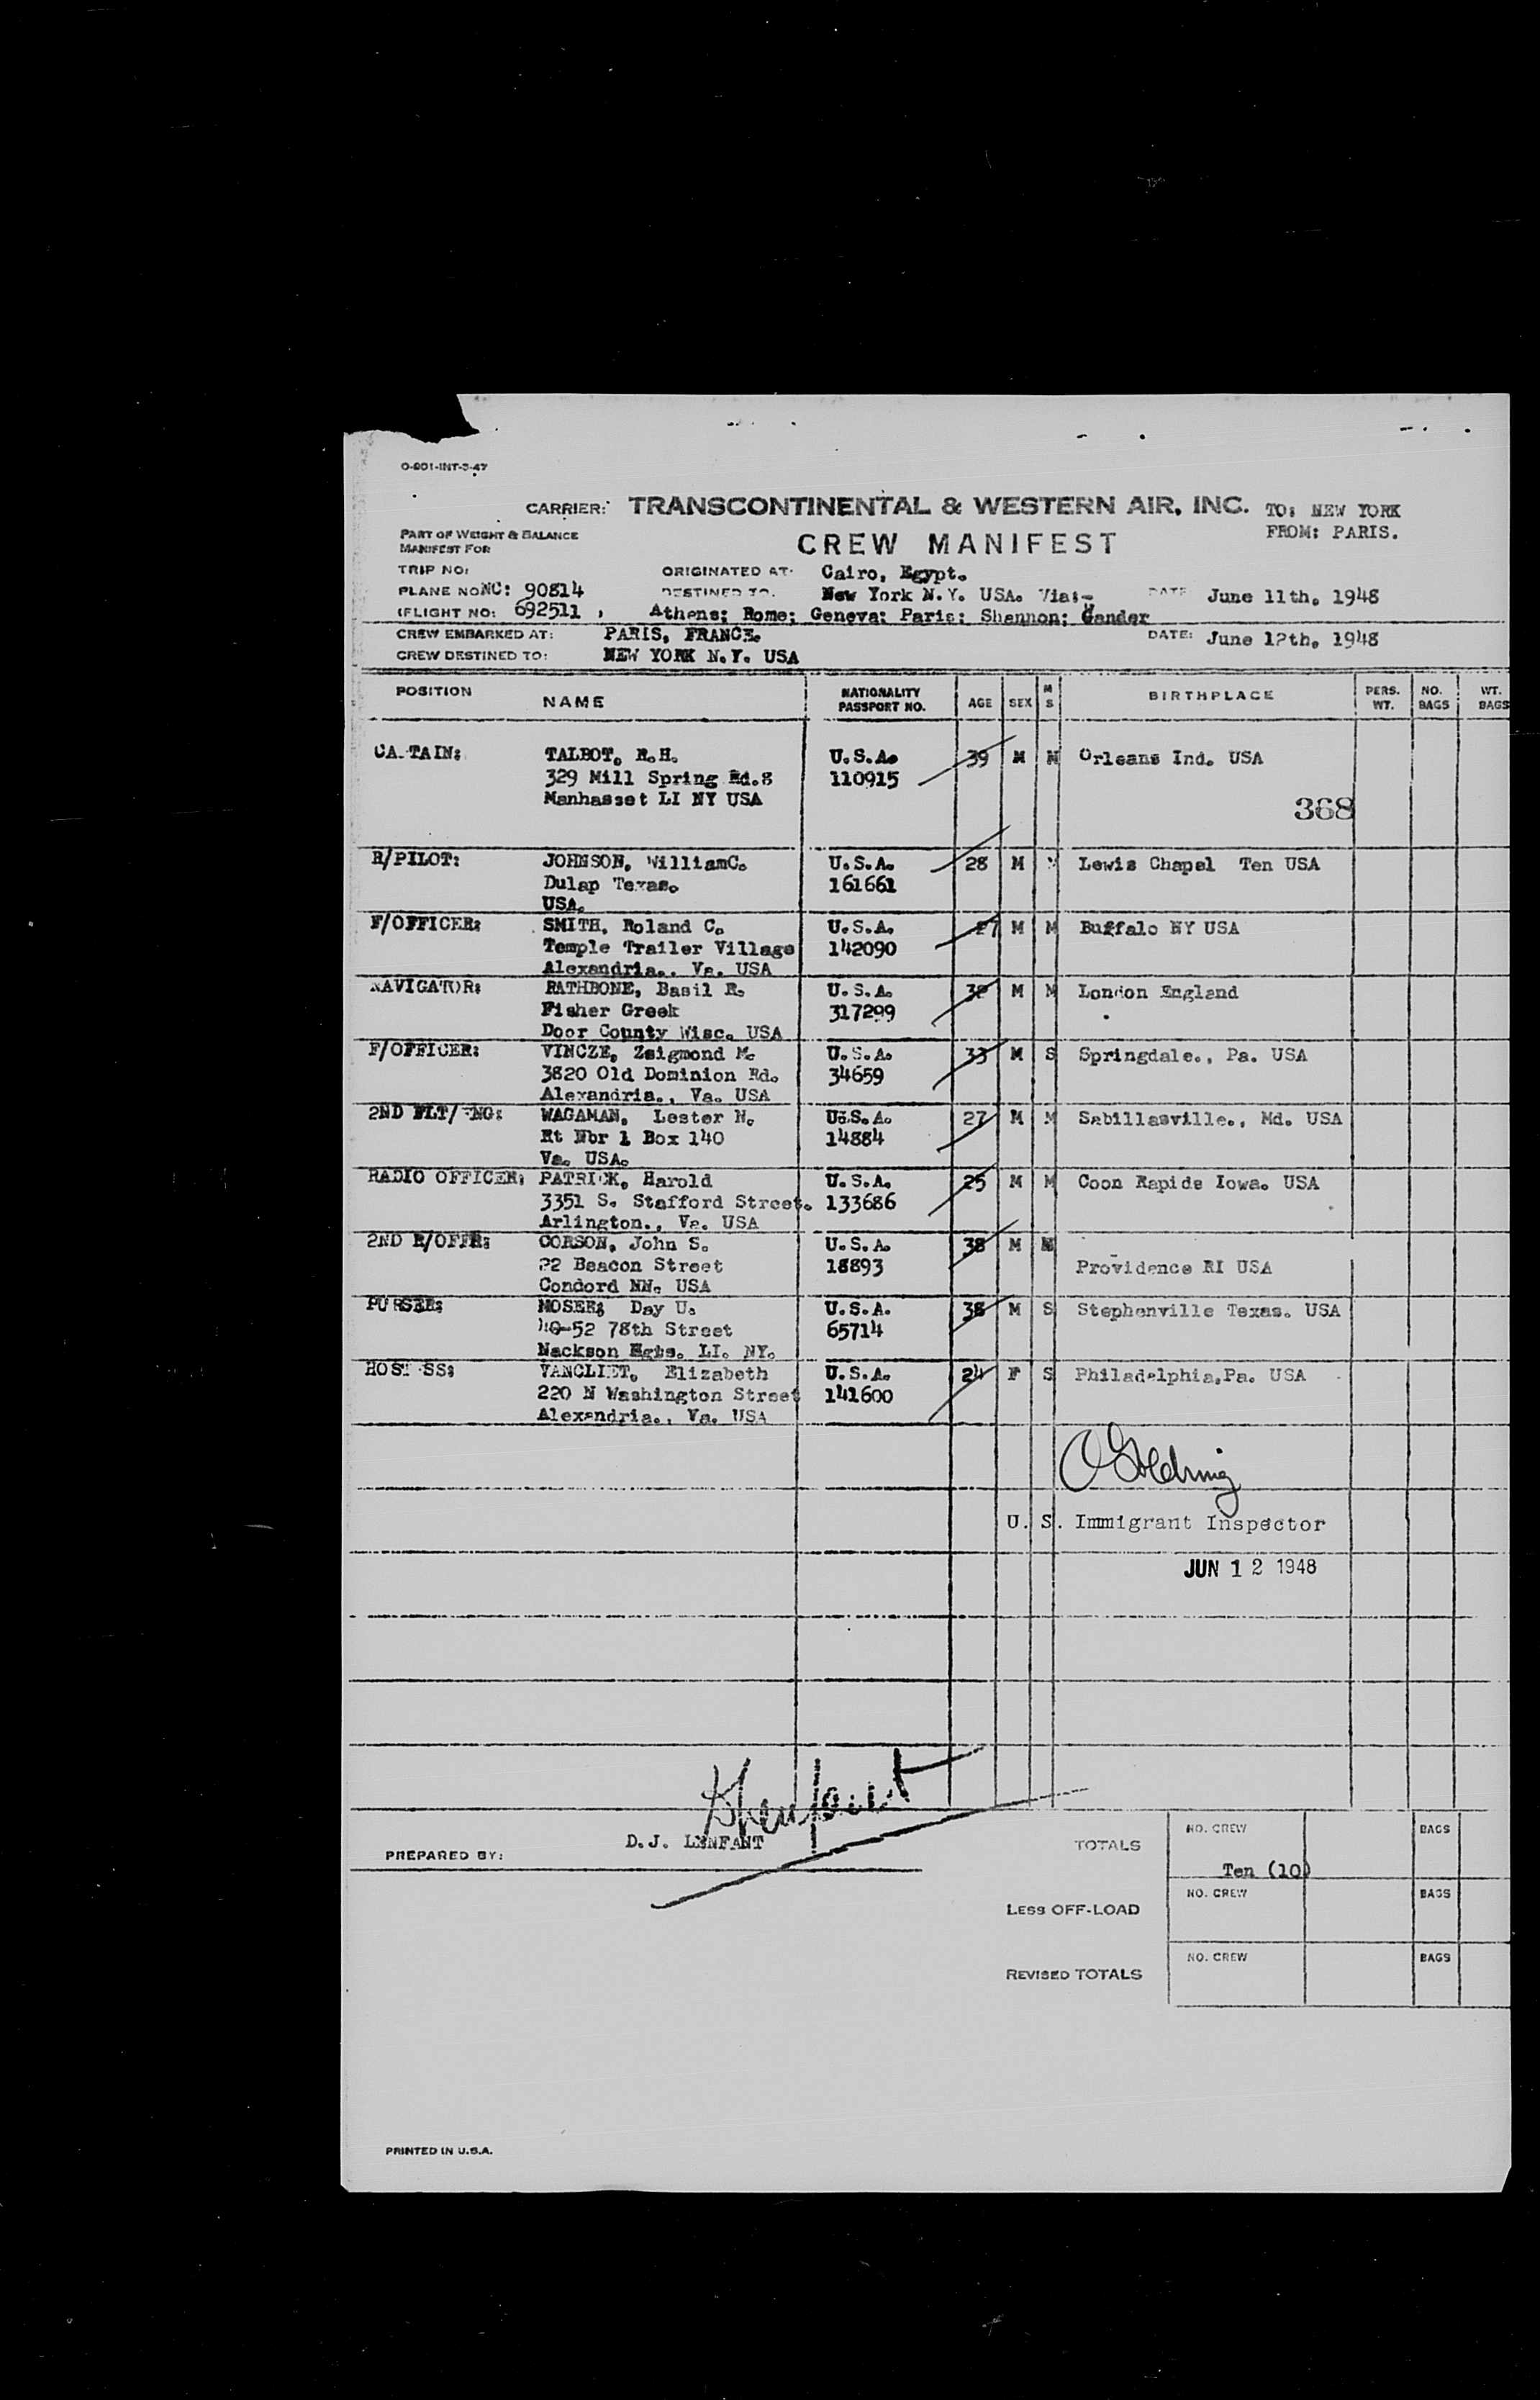 O-901-INT-3-47
CARRIER: TRANSCONTINENTAL & WESTERN AIR, INC. TO: NEW YORK
FROM: PARIS.
PART OF WEIGHT & BALANCE
MANIFEST FOR
CREW MANIFEST
TRIP NO: ORIGINATED AT: Cairo, Egypt.
PLANE NO NC: 90814 DESTINED TO. New York N.Y. USA. Via:- DATE June 11th, 1948
(FLIGHT NO: 692511 , Athens; Rome; Geneva; Paris; Shannon; Gander
CREW EMBARKED AT: PARIS, FRANCE. DATE: June 12th, 1948
CREW DESTINED TO: NEW YORK N.Y. USA
POSITION NAME NATIONALITY PASSPORT NO. AGE SEX M S BIRTHPLACE PERS. WT. NO. BAGS WT. BAGS
CA TAIN: TALBOT, R.H. U.S.A. 39 M M Orleans Ind. USA
329 Mill Spring Rd.S 110915
Manhasset LI NY USA
368
R/PILOT: JOHNSON, WilliamC. U.S.A. 28 M M Lewis Chapel Ten USA
Dulap Texas. 161661
USA.
F/OFFICER: SMITH, Roland C. U.S.A. 27 M M Buffalo NY USA
Temple Trailer Village 142090
Alexandria., Va. USA
NAVIGATOR: RATHBONE, Basil R. U.S.A. M M London England
Fisher Greek 317299
Door County Wisc. USA
F/OFFICER: VINCZE, Zsigmond M. U.S.A. 33 M S Springdale., Pa. USA
3820 Old Dominion Rd. 34659
Alexandria., Va. USA
2ND FLT/ ENG: WAGAMAN, Lester N. U.S.A. 27 M M Sabillasville., Md. USA
Rt Nbr 1 Box 140 14884
Va. USA.
RADIO OFFICER: PATRICK, Harold U.S.A. 25 M M Coon Rapids Iowa. USA
3351 S. Stafford Street. 133686
Arlington., Va. USA
2ND R/OFFR: CORSON, John S. U.S.A. 38 M M
22 Beacon Street 18893 Providence RI USA
Condord NN. USA
PURSER: MOSER; Day U. U.S.A. 38 M S Stephenville Texas. USA
40-52 78th Street 65714
Nackson Hgts. LI. NY.
HOSTESS: VANCLIET, Elizabeth U.S.A. 24 F S Philadelphia,Pa. USA
220 N Washington Street 141600
Alexandria., Va. USA
O Goldring
U. S. Immigrant Inspector
JUN 12 1948
DLenfant
PREPARED BY: D.J. LENFANT
TOTALS NO. CREW BAGS
Ten (10)
LESS OFF-LOAD NO. CREW BAGS
REVISED TOTALS NO. CREW BAGS
PRINTED IN U.S.A.